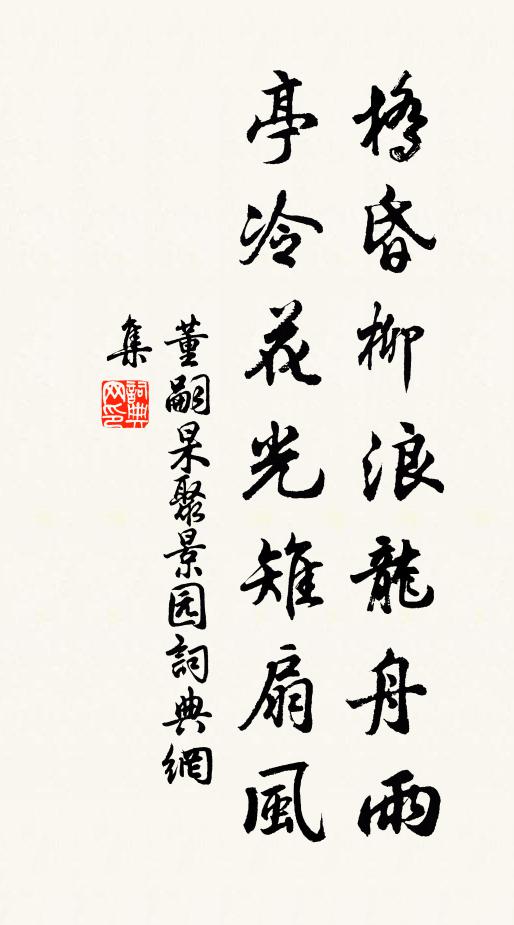 橋昏柳浪龍舟雨
亭冷花光雉扇風
董嗣杲聚景园詞典網
集
詞典
网印